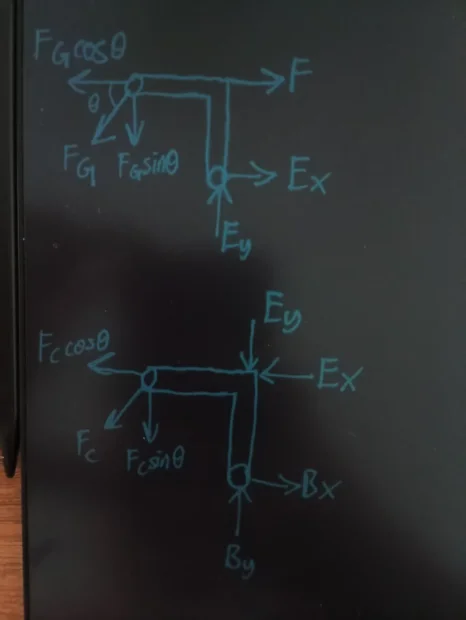 F_G cosθ
F
θ
F_G
F_G sinθ
Ex
Ey
Ey
F_C cosθ
Ex
F_C
F_C sinθ
Bx
By